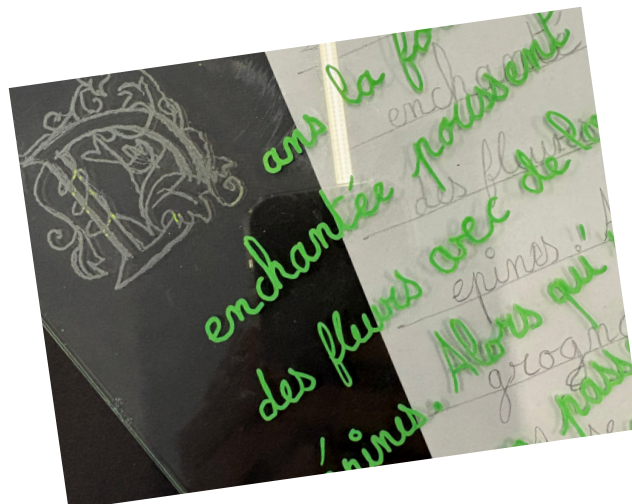 Dans la fo
enchantée poussent
des fleurs avec de
épines. Alors qui
pass
enchanté
des fleurs
epines. A
grogn